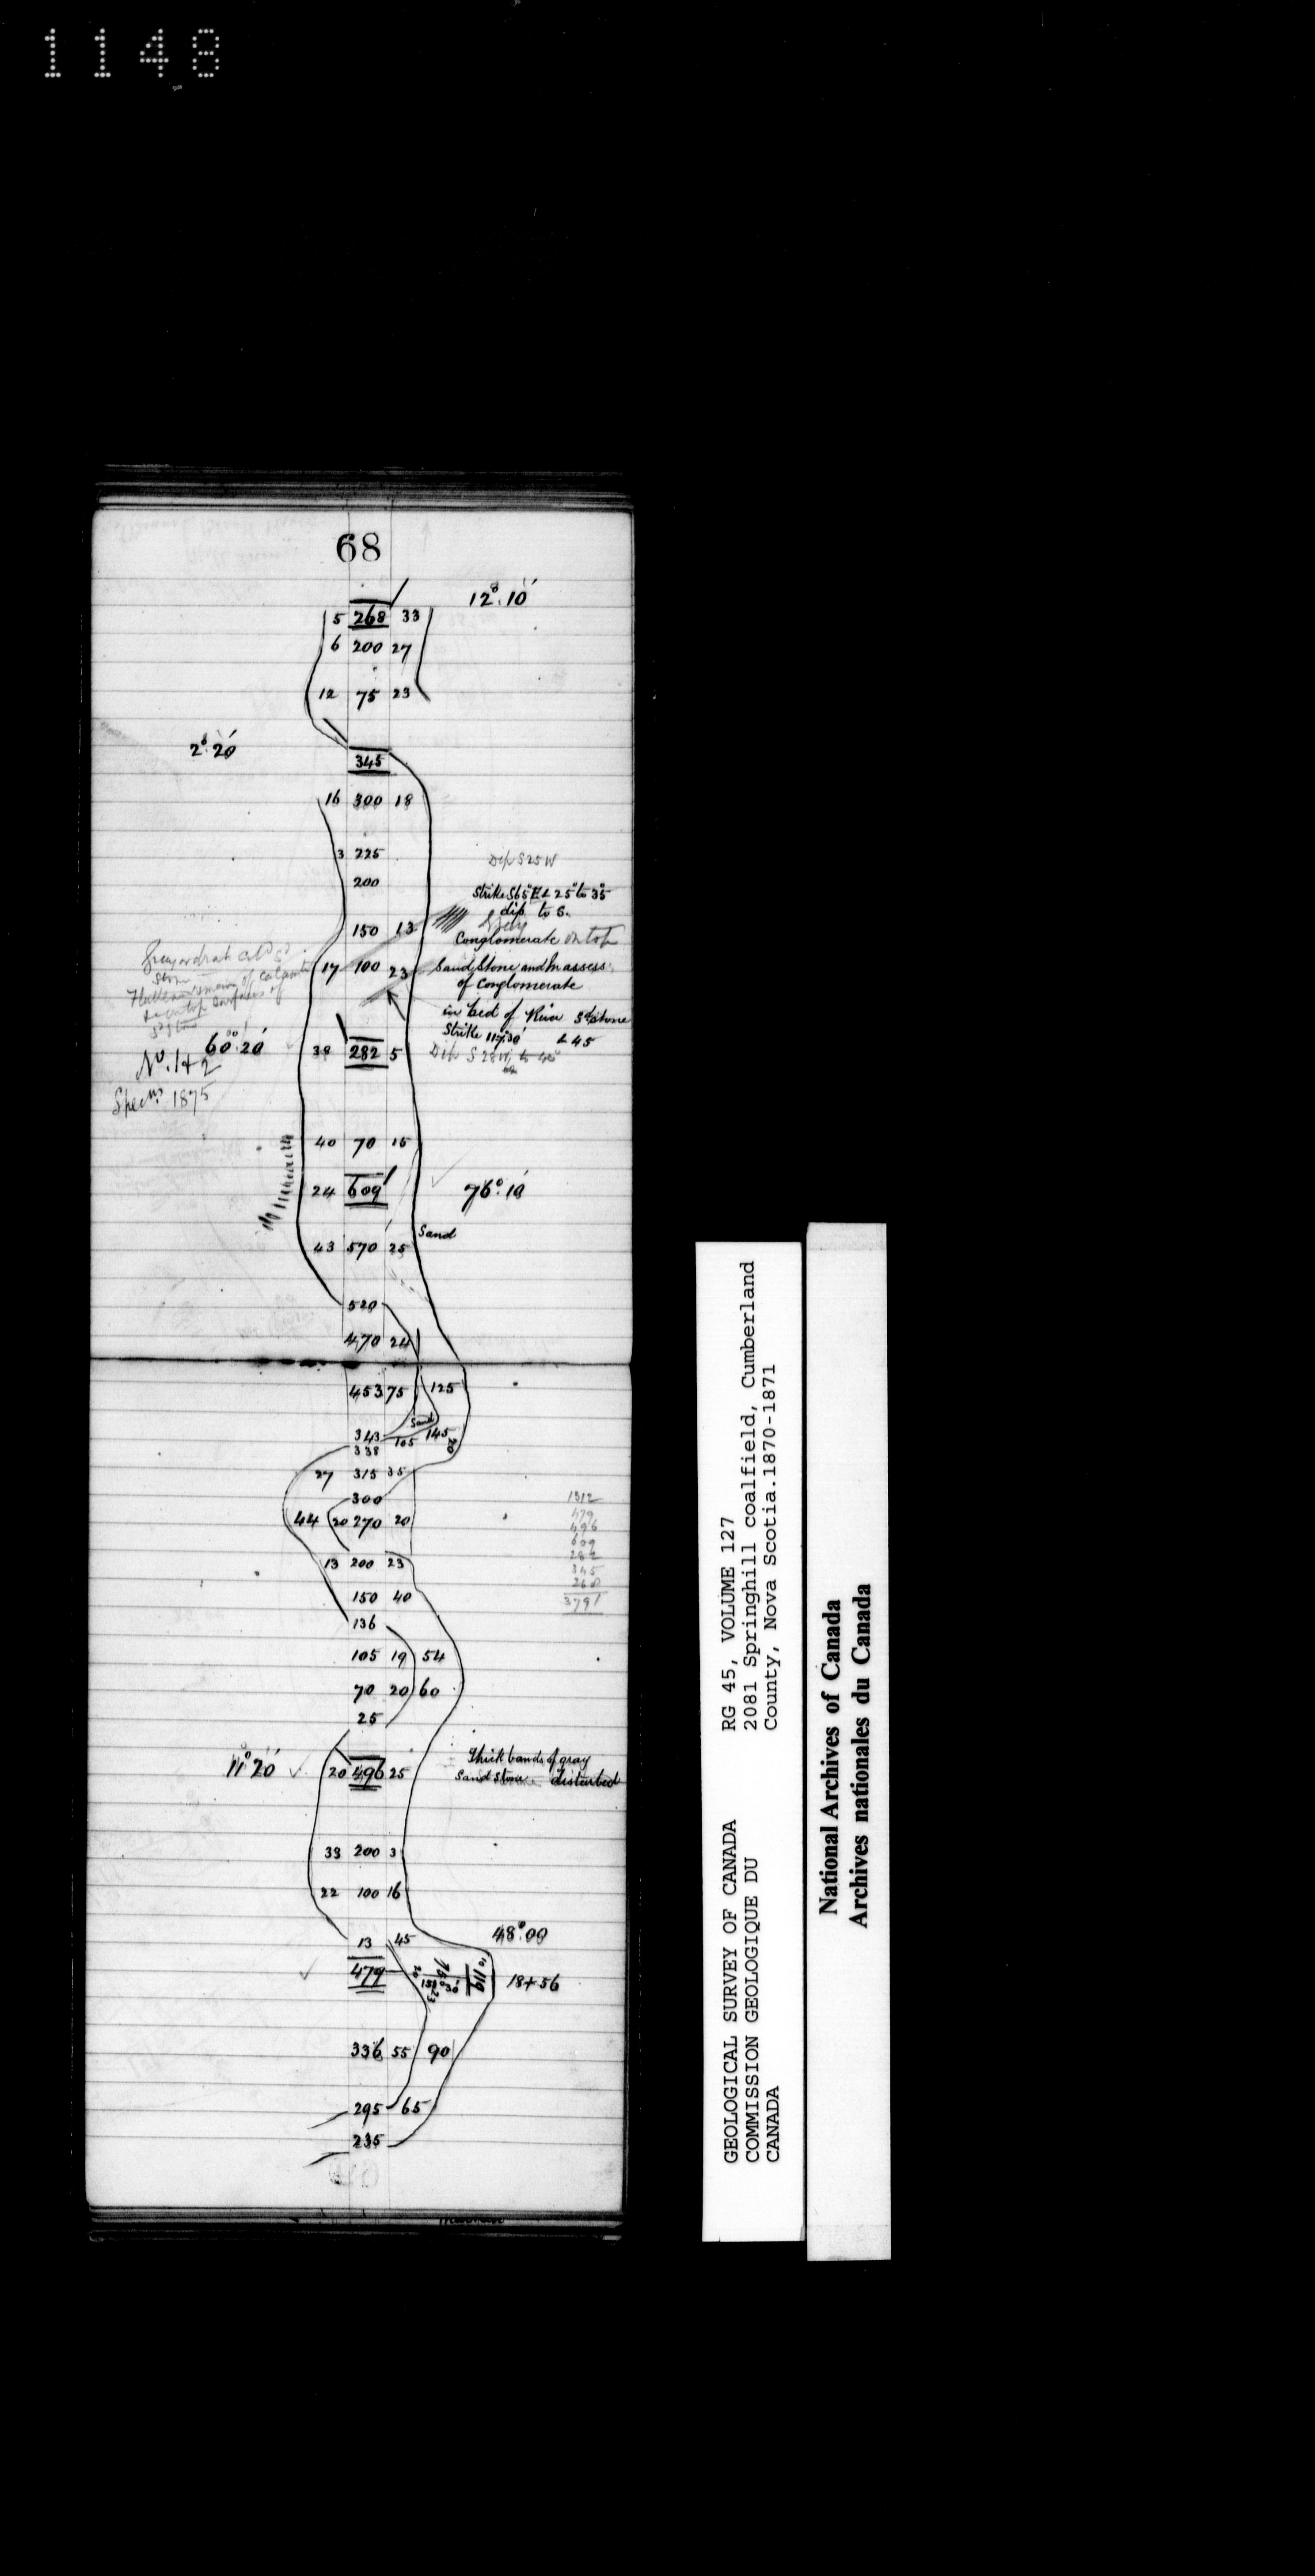 1148
68
12°.10′
5 268 33
6 200 27
12 75 23
2°.20′
345
16 300 18
3 225
Dip S 25 W
200
Strike S65°E ∠ 25° to 35°
dip to S.
150 13
Conglomerate on top
17 100 23
Sand Stone and masses
of Conglomerate
in bed of River
Strike 117°.30′ ∠ 45
60°.20′
38 282 5
No. 1 + 2
Specms 1875
40 70 15
24 609
76°.10′
Sand
43 570 25
520
470 24
453 75 125
Sand
343 105 145 20
338
27 315 35
300
44 20 270 20
13 200 23
150 40
136
1312
479
496
609
282
345
268
3791
105 19 54
70 20 60
25
Thick bands of gray
Sand Stone disturbed
11°20′
20 496 25
33 200 3
22 100 16
48°.00
13 45
479
119
18+56
336 55 90
295 65
235
GEOLOGICAL SURVEY OF CANADA
COMMISSION GEOLOGIQUE DU
CANADA
RG 45, VOLUME 127
2081 Springhill coalfield, Cumberland
County, Nova Scotia.1870-1871
National Archives of Canada
Archives nationales du Canada